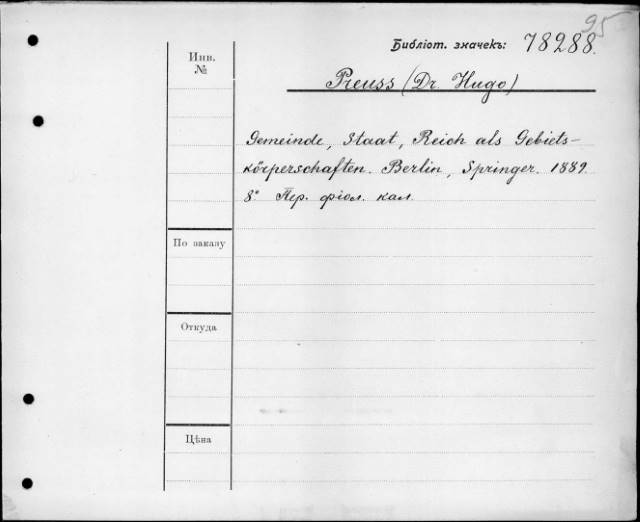 95
Библіот. значекъ: 78288.
Инв.
№
Preuss (Dr. Hugo)
Gemeinde, Staat, Reich als Gebiets-
körperschaften. Berlin, Springer. 1889.
8° Пер. фіол. кал.
По заказу
Откуда
Цѣна